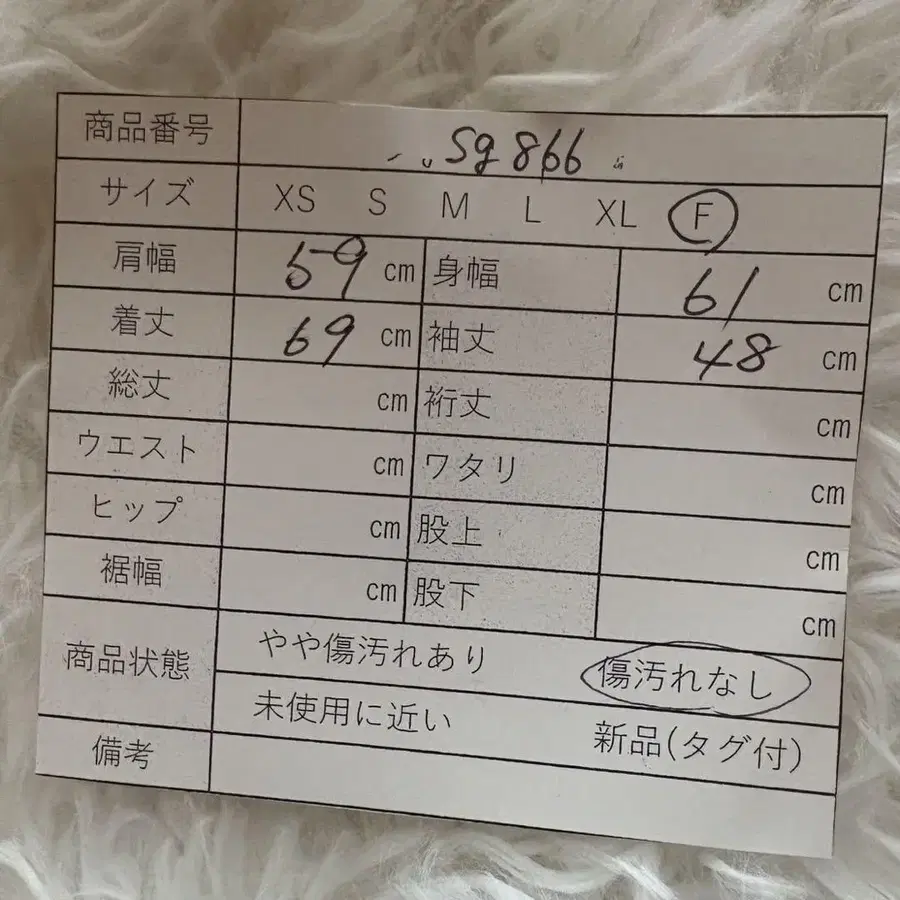 商品番号 Sg 866
サイズ XS S M L XL F
肩幅 59 cm 身幅 61 cm
着丈 69 cm 袖丈 48 cm
総丈 cm 裄丈 cm
ウエスト cm ワタリ cm
ヒップ cm 股上 cm
裾幅 cm 股下 cm
商品状態 やや傷汚れあり 傷汚れなし
未使用に近い 新品(タグ付)
備考